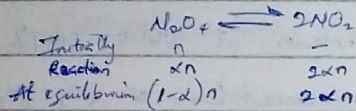 N₂O₄ ⇌ 2NO₂
Initially n –
Reaction αn 2αn
At equilibrium (1-α)n 2αn